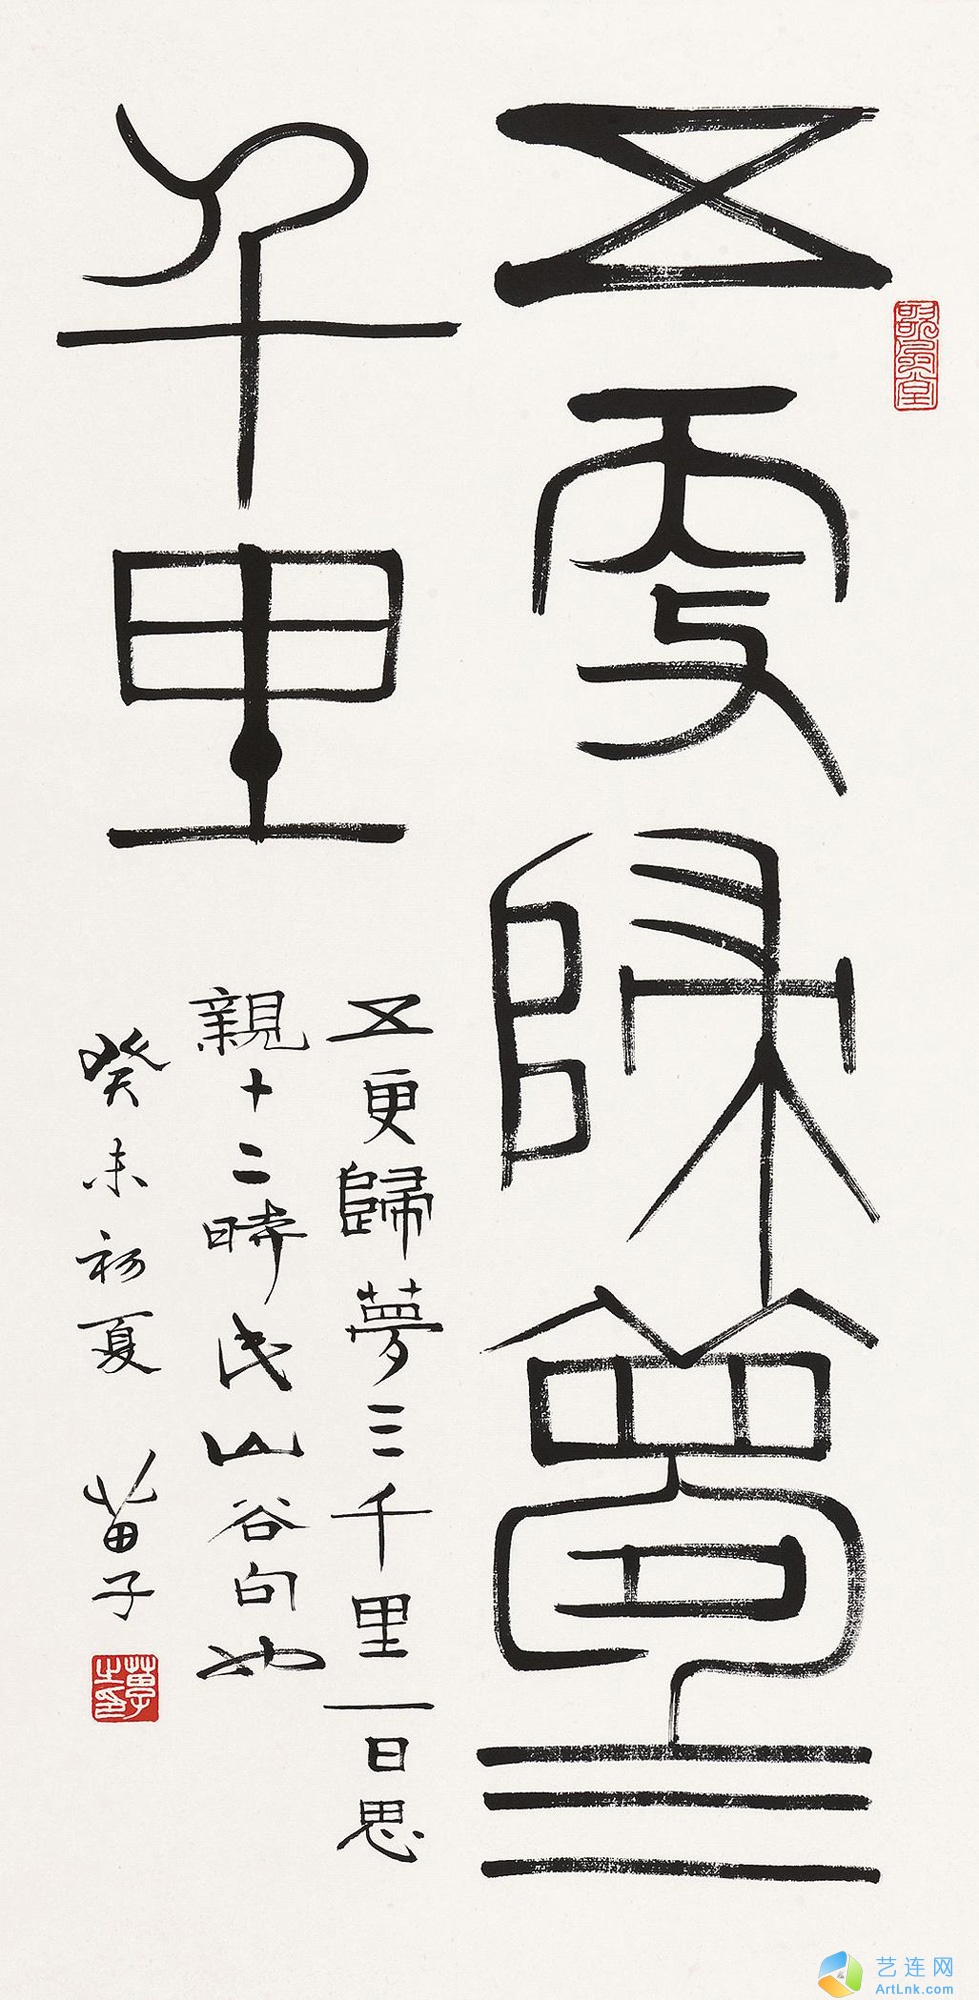 五更歸夢三
千里
五更歸夢三千里一日思
親十二時此山谷句也
癸未初夏 苗子
艺连网
ArtLnk.com